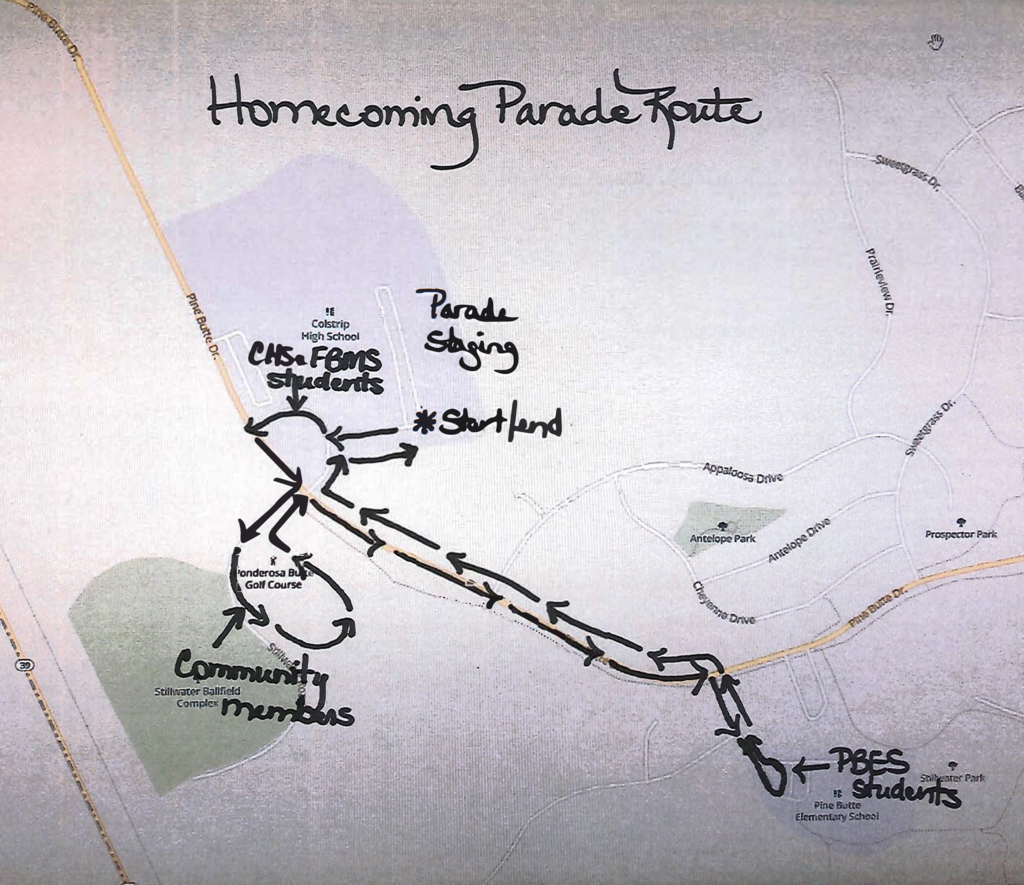 Pine Butte Dr.
Homecoming Parade Route
Sweetgrass Dr.
Prairieview Dr.
Pine Butte Dr.
Colstrip
High School
Parade
Staging
CHS & FBMS
students
* Start/end
Sweetgrass Dr.
Appaloosa Drive
Antelope Park
Antelope Drive
Prospector Park
Ponderosa Butte
Golf Course
Cheyenne Drive
Pine Butte Dr.
39
Community
members
Stillwater Ballfield
Complex
PBES
students
Stillwater Park
Pine Butte
Elementary School